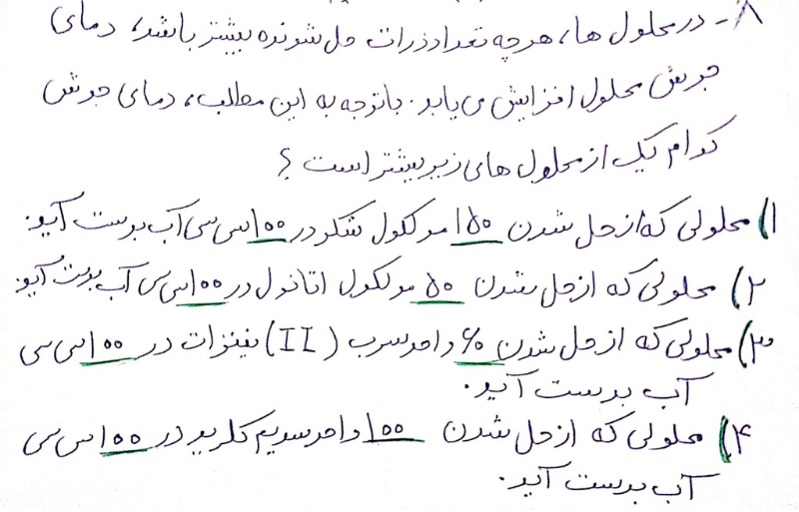 ۸- در محلول ها، هرچه تعداد ذرات حل شونده بیشتر باشد، دمای
جوش محلول افزایش می یابد. باتوجه به این مطلب، دمای جوش
کدام یک از محلول های زیر بیشتر است؟
۱) محلولی که از حل شدن ۱۵۰ مولکول شکر در ۱۰۰ سی سی آب بدست آید.
۲) محلولی که از حل شدن ۵۰ مولکول اتانول در ۱۰۰ سی سی آب بدست آید.
۳) محلولی که از حل شدن ۶۰ واحد سرب (II) نیترات در ۱۰۰ سی سی
آب بدست آید.
۴) محلولی که از حل شدن ۱۰۰ واحد سدیم کلرید در ۱۰۰ سی سی
آب بدست آید.